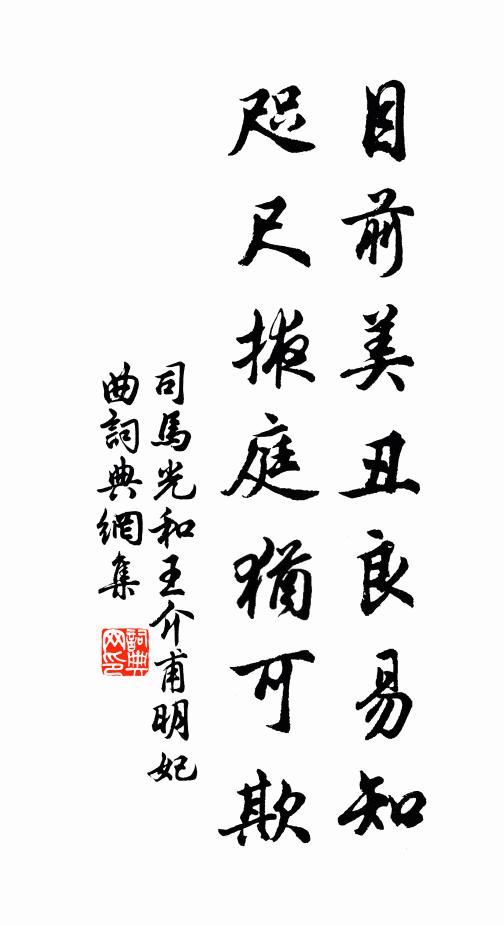 目前美丑良易知
咫尺掖庭猶可欺
司馬光和王介甫明妃
曲詞典網集
詞典
网印